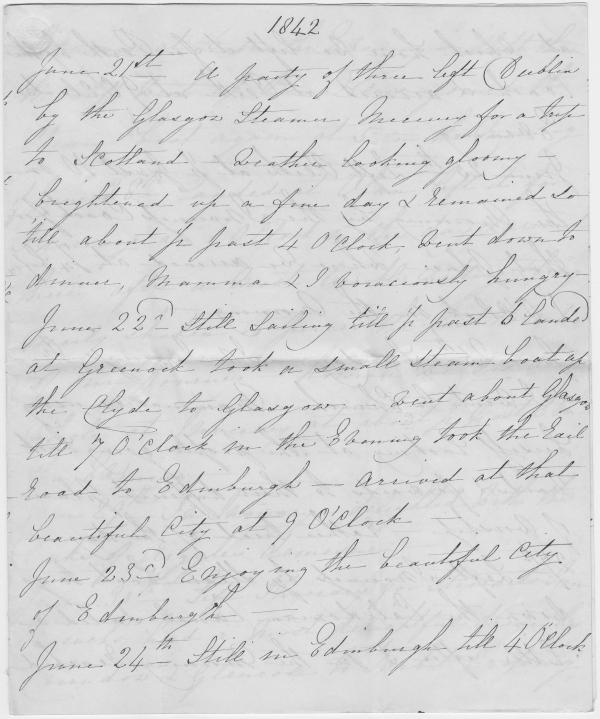 1842
June 21th A party of three left Dublin
by the Glasgow Steamer Mercury for a trip
to Scotland — Weather looking gloomy —
brightened up a fine day & remained so
'till about ½ past 4 O'Clock, went down to
dinner, Mamma & I voraciously hungry —
June 22nd Still Sailing till ½ past 6 landed
at Greenock took a small steam boat up
the Clyde to Glasgow — went about Glasgow
till 7 O'Clock in the Evening took the Rail
road to Edinburgh — arrived at that
beautiful City at 9 O'Clock —
June 23rd Enjoying the beautiful City
of Edinburgh —
June 24th Still in Edinburgh till 4 O'Clock